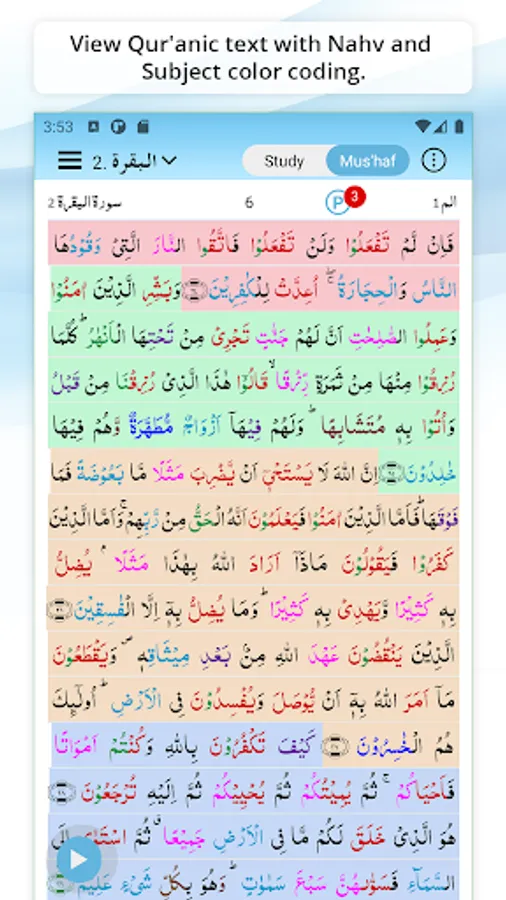 View Qur'anic text with Nahv and
Subject color coding.
3:53
2. البقرة
Study
Mus'haf
سورة البقرة 2
6
P
3
الم 1
فَاِنْ لَّمْ تَفْعَلُوْا وَلَنْ تَفْعَلُوْا فَاتَّقُوا النَّارَ الَّتِىْ وَقُوْدُهَا
النَّاسُ وَالْحِجَارَةُ ۖ اُعِدَّتْ لِلْكٰفِرِيْنَ وَبَشِّرِ الَّذِيْنَ اٰمَنُوْا
وَعَمِلُوا الصّٰلِحٰتِ اَنَّ لَهُمْ جَنّٰتٍ تَجْرِىْ مِنْ تَحْتِهَا الْاَنْهٰرُ ؕ كُلَّمَا
رُزِقُوْا مِنْهَا مِنْ ثَمَرَةٍ رِّزْقًا ۙ قَالُوْا هٰذَا الَّذِىْ رُزِقْنَا مِنْ قَبْلُ
وَاُتُوْا بِهٖ مُتَشَابِهًا ؕ وَلَهُمْ فِيْهَآ اَزْوَاجٌ مُّطَهَّرَةٌ وَّهُمْ فِيْهَا
خٰلِدُوْنَ اِنَّ اللّٰهَ لَا يَسْتَحْىٖٓ اَنْ يَّضْرِبَ مَثَلًا مَّا بَعُوْضَةً فَمَا
فَوْقَهَا ؕ فَاَمَّا الَّذِيْنَ اٰمَنُوْا فَيَعْلَمُوْنَ اَنَّهُ الْحَقُّ مِنْ رَّبِّهِمْ ۚ وَاَمَّا الَّذِيْنَ
كَفَرُوْا فَيَقُوْلُوْنَ مَاذَآ اَرَادَ اللّٰهُ بِهٰذَا مَثَلًا ۘ يُضِلُّ
بِهٖ كَثِيْرًا وَّيَهْدِىْ بِهٖ كَثِيْرًا ؕ وَمَا يُضِلُّ بِهٖٓ اِلَّا الْفٰسِقِيْنَ
الَّذِيْنَ يَنْقُضُوْنَ عَهْدَ اللّٰهِ مِنْۢ بَعْدِ مِيْثَاقِهٖ ۪ وَيَقْطَعُوْنَ
مَآ اَمَرَ اللّٰهُ بِهٖٓ اَنْ يُّوْصَلَ وَيُفْسِدُوْنَ فِى الْاَرْضِ ؕ اُولٰٓئِكَ
هُمُ الْخٰسِرُوْنَ كَيْفَ تَكْفُرُوْنَ بِاللّٰهِ وَكُنْتُمْ اَمْوَاتًا
فَاَحْيَاكُمْ ۚ ثُمَّ يُمِيْتُكُمْ ثُمَّ يُحْيِيْكُمْ ثُمَّ اِلَيْهِ تُرْجَعُوْنَ
هُوَ الَّذِىْ خَلَقَ لَكُمْ مَّا فِى الْاَرْضِ جَمِيْعًا ۗ ثُمَّ اسْتَوٰٓى اِلَى
السَّمَآءِ فَسَوّٰىهُنَّ سَبْعَ سَمٰوٰتٍ ؕ وَهُوَ بِكُلِّ شَىْءٍ عَلِيْمٌ